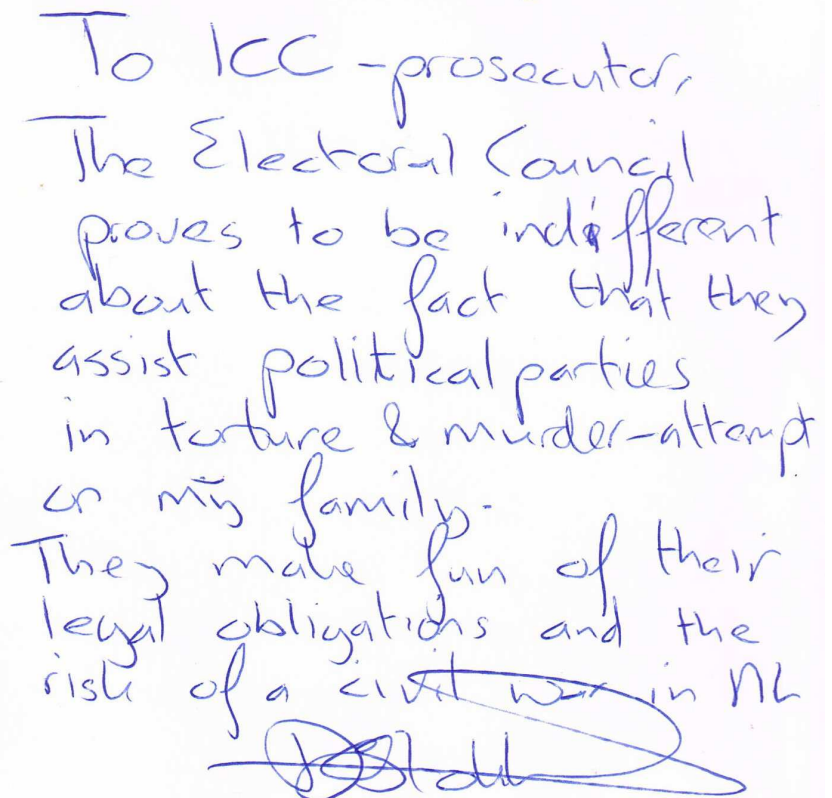 To ICC-prosecutor,
The Electoral Council
proves to be indifferent
about the fact that they
assist political parties
in torture & murder-attempt
on my family.
They make fun of their
legal obligations and the
risk of a civil war in NL